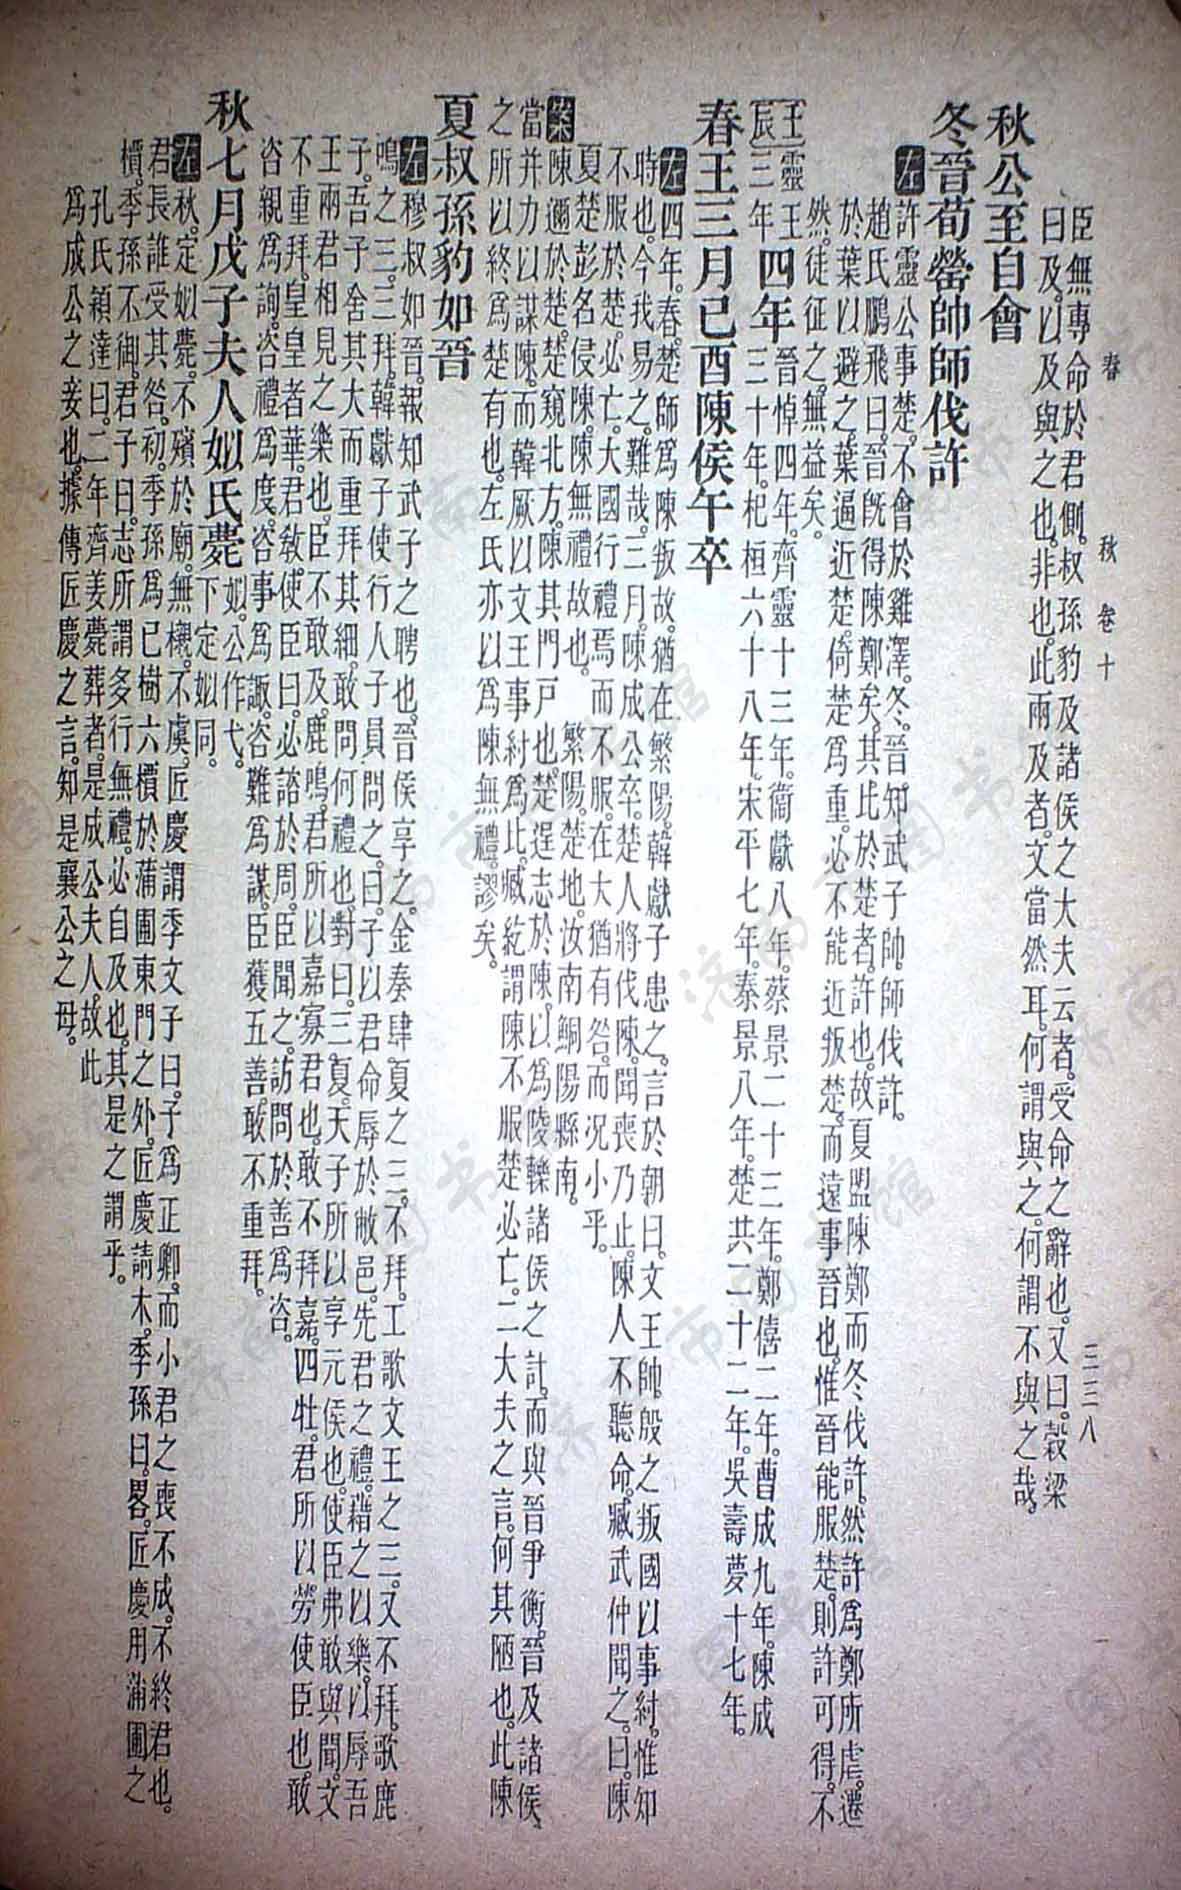 春秋 卷十 三三八
臣無專命於君側。叔孫豹及諸侯之大夫云者。受命之辭也。又曰。穀梁
曰及。以及與之也。非也。此兩及者。文當然耳。何謂與之。何謂不與之哉。
秋公至自會
冬晉荀罃帥師伐許
左許靈公事楚。不會於雞澤。冬。晉知武子帥師伐許。
趙氏鵬飛曰。晉旣得陳鄭矣。其比於楚者。許也。故夏盟陳鄭而冬伐許。然許為鄭所虐。遷
於葉以避之。葉逼近楚。倚楚為重。必不能近叛楚。而遠事晉也。惟晉能服楚。則許可得。不
然。徒征之。無益矣。
壬辰 靈王三年 四年 晉悼四年。齊靈十三年。衞獻八年。蔡景二十三年。鄭僖二年。曹成九年。陳成
三十年。杞桓六十八年。宋平七年。秦景八年。楚共二十二年。吳壽夢十七年。
春王三月己酉陳侯午卒
左四年。春。楚師為陳叛故。猶在繁陽。韓獻子患之。言於朝曰。文王帥殷之叛國以事紂。惟知
時也。今我易之。難哉。三月。陳成公卒。楚人將伐陳。聞喪乃止。陳人不聽命。臧武仲聞之。曰。陳
不服於楚。必亡。大國行禮焉而不服。在大猶有咎。而況小乎。
夏。楚彭名侵陳。陳無禮故也。 繁陽。楚地。汝南鮦陽縣南。
案陳邇於楚。楚窺北方。陳其門戶也。楚逞志於陳。以為陵轢諸侯之計。而與晉爭衡。晉及諸侯。
當并力以謀陳。而韓厥以文王事紂為比。臧紇謂陳不服楚必亡。二大夫之言。何其陋也。此陳
之所以終為楚有也。左氏亦以為陳無禮。謬矣。
夏叔孫豹如晉
左穆叔如晉。報知武子之聘也。晉侯享之。金奏肆夏之三。不拜。工歌文王之三。又不拜。歌鹿
鳴之三。三拜。韓獻子使行人子員問之。曰。子以君命辱於敝邑。先君之禮。藉之以樂。以辱吾
子。吾子舍其大而重拜其細。敢問何禮也。對曰。三夏。天子所以享元侯也。使臣弗敢與聞。文
王兩君相見之樂也。臣不敢及。鹿鳴。君所以嘉寡君也。敢不拜嘉。四牡。君所以勞使臣也。敢
不重拜。皇皇者華。君敎使臣曰。必諮於周。臣聞之。訪問於善為咨。
咨親為詢。咨禮為度。咨事為諏。咨難為謀。臣獲五善。敢不重拜。
秋七月戊子夫人姒氏薨 姒。公作弋。下定姒同。
左秋。定姒薨。不殯於廟。無櫬。不虞。匠慶謂季文子曰。子為正卿。而小君之喪不成。不終君也。
君長。誰受其咎。初。季孫為己樹六檟於蒲圃東門之外。匠慶請木。季孫曰。畧。匠慶用蒲圃之
檟。季孫不御。君子曰。志所謂多行無禮。必自及也。其是之謂乎。
孔氏穎達曰。二年齊姜薨葬者。是成公夫人。故此
為成公之妾也。據傳匠慶之言。知是襄公之母。